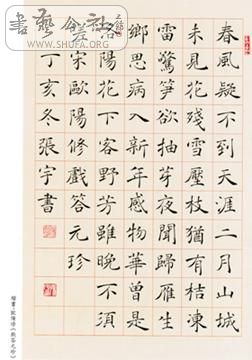 春風疑不到天涯二月山城
未見花殘雪壓枝猶有桔凍
雷驚笋欲抽芽夜聞歸雁生
鄉思病入新年感物華曾是
洛陽花下客野芳雖晚不須
宋歐陽修戲答元珍
丁亥冬張宇書
WWW.SHUFA.ORG
楷書·歐陽修《戲答元珍》